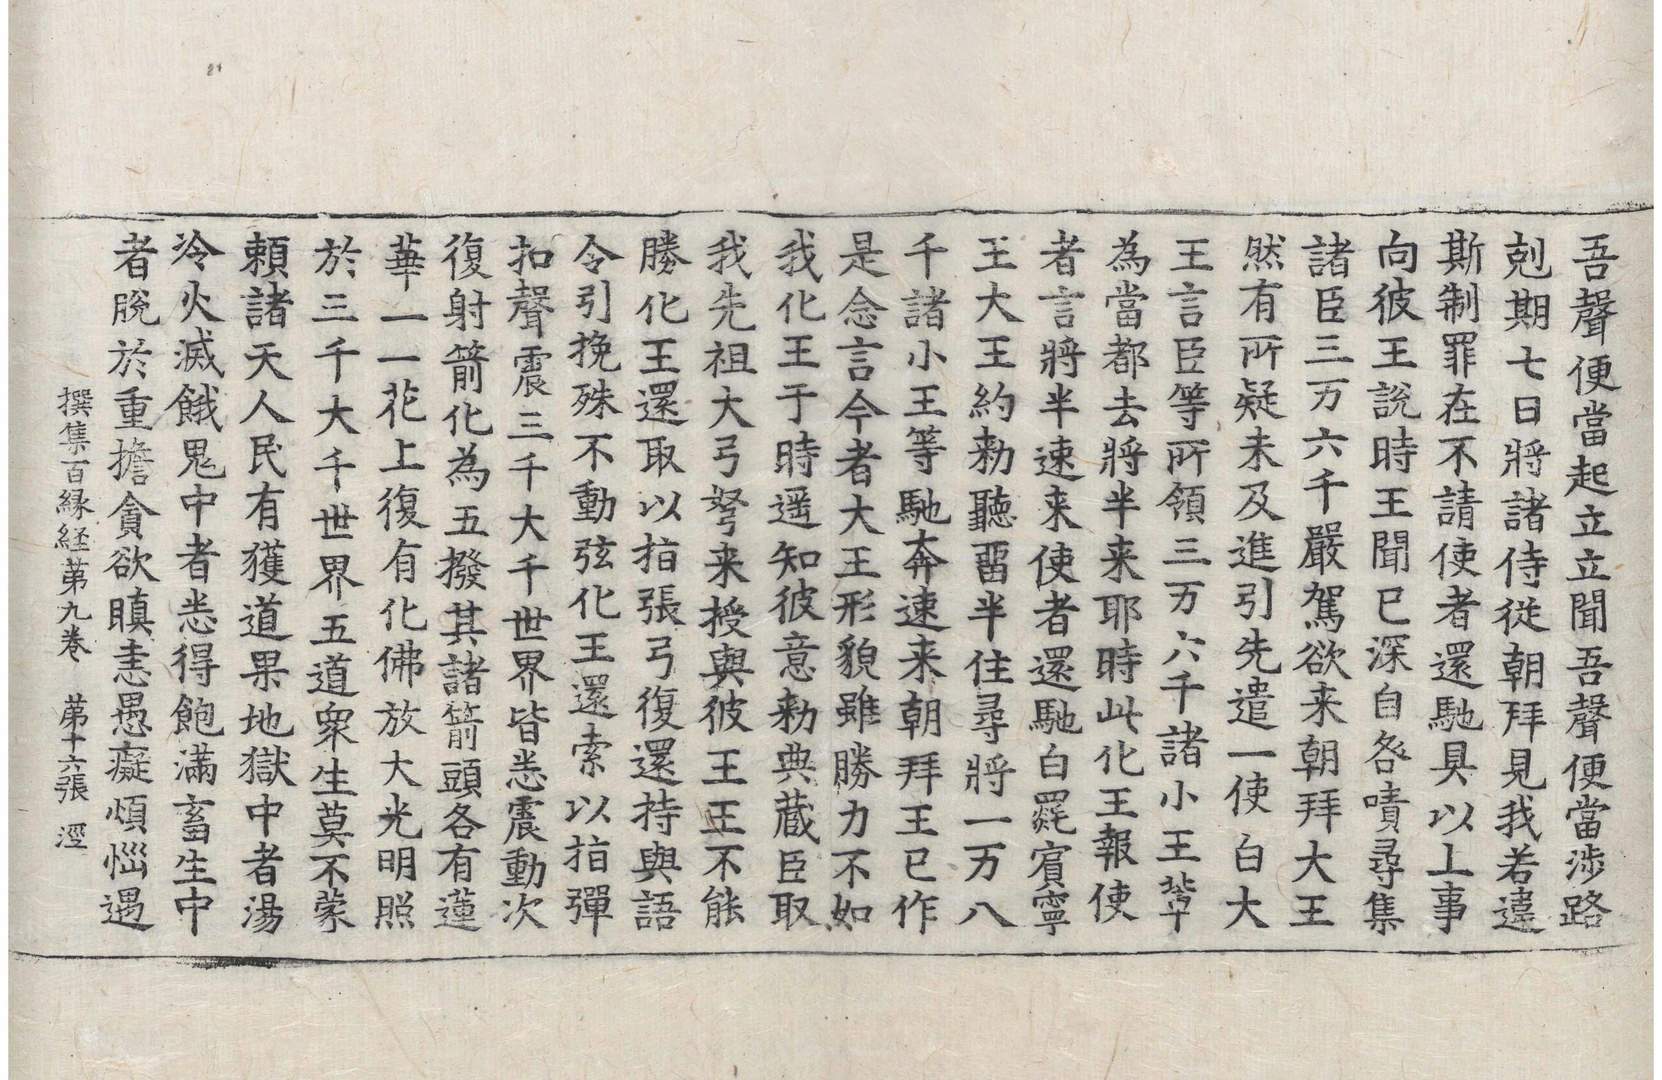 吾聲便當起立立聞吾聲便當涉路
剋期七日將諸侍從朝拜見我若違
斯制罪在不請使者還馳具以上事
向彼王說時王聞已深自咎嘖尋集
諸臣三万六千嚴駕欲来朝拜大王
然有所疑未及進引先遣一使白大
王言臣等所領三万六千諸小王輩
為當都去將半来耶時此化王報使
者言將半速来使者還馳白罽賓寧
王大王約勑聽留半住尋將一万八
千諸小王等馳奔速来朝拜王已作
是念言今者大王形貌雖勝力不如
我化王于時遥知彼意勑典蔵臣取
我先祖大弓弩来授與彼王王不能
勝化王還取以指張弓復還持與語
令引挽殊不動弦化王還索以指彈
扣聲震三千大千世界皆悉震動次
復射箭化為五撥其諸箭頭各有蓮
華一一花上復有化佛放大光明照
於三千大千世界五道衆生莫不蒙
頼諸天人民有獲道果地獄中者湯
冷火滅餓鬼中者悉得飽滿畜生中
者脫於重擔貪欲瞋恚愚癡煩惱遇
撰集百縁経第九卷 第十六張 涇